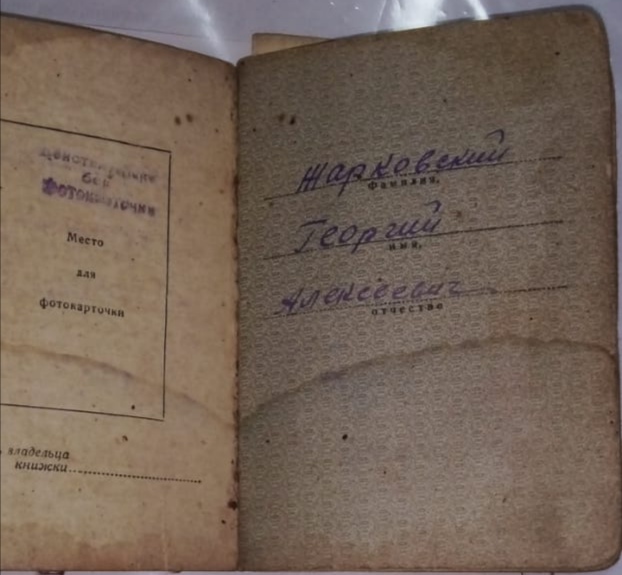 Действительна
без
фотокарточки
Место
для
фотокарточки
владельца
книжки
Жарковский
фамилия,
Георгий
имя,
Алексеевич
отчество